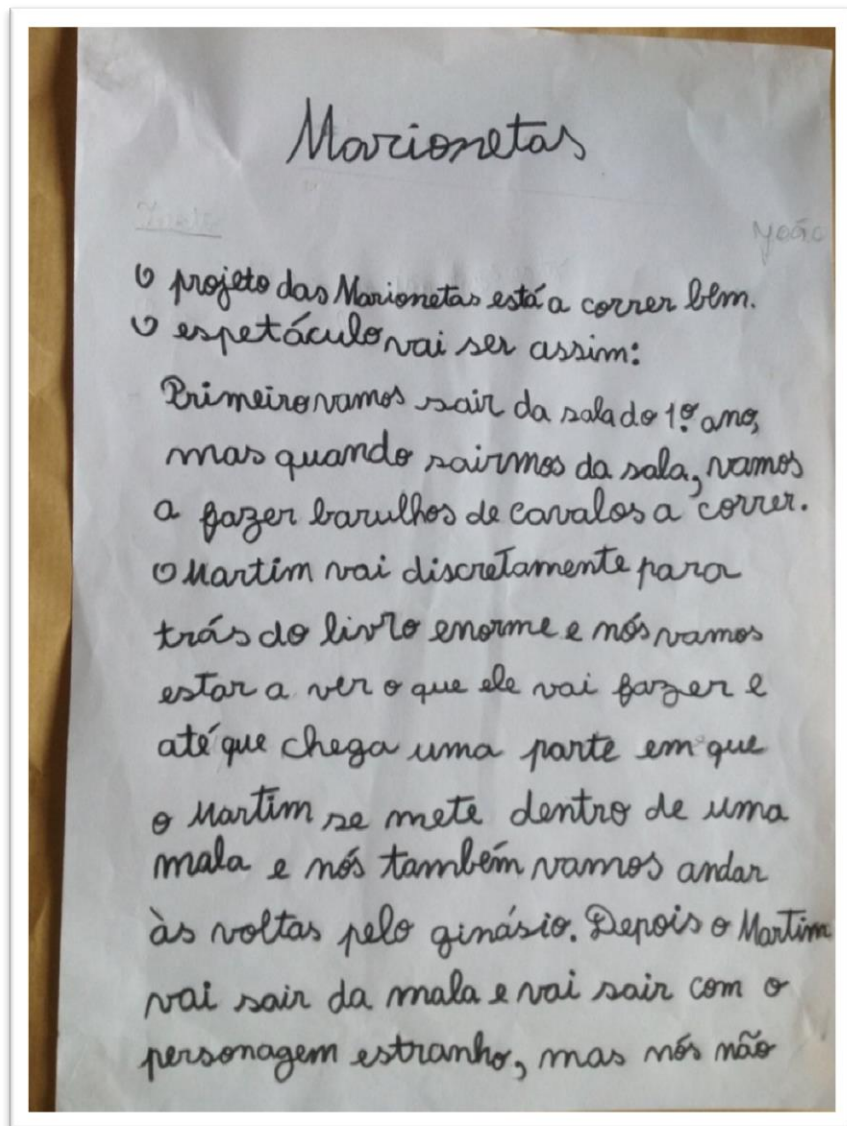 Marionetas
João
O projeto das Marionetas está a correr bem.
O espetáculo vai ser assim:
Primeiro vamos sair da sala do 1º ano,
mas quando sairmos da sala, vamos
a fazer barulhos de cavalos a correr.
O Martim vai discretamente para
trás do livro enorme e nós vamos
estar a ver o que ele vai fazer e
até que chega uma parte em que
o Martim se mete dentro de uma
mala e nós também vamos andar
às voltas pelo ginásio. Depois o Martim
vai sair da mala e vai sair com o
personagem estranho, mas nós não